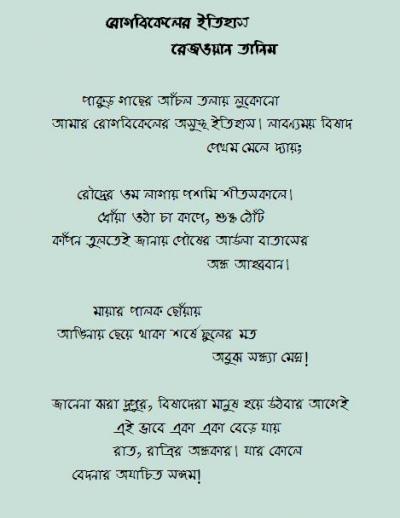 রোগবিকেলের ইতিহাস
রেজওয়ান তানিম
পাকুড় গাছের আঁচল তলায় লুকোনো
আমার রোগবিকেলের অসুস্থ ইতিহাস। লাবন্যময় বিষাদ
পেখম মেলে দ্যায়;
রৌদ্রের ওম লাগায় পশমি শীতসকালে।
ধোঁয়া ওঠা চা কাপে, শুষ্ক ঠোঁট
কাঁপন তুলতেই জানায় পৌষের আউলা বাতাসের
অন্ধ আহ্ববান।
মায়ার পালক ছোঁয়ায়
আঙিনায় ছেয়ে থাকা শর্ষে ফুলের মত
অবুঝ সন্ধ্যা মেঘ!
জানেনা ঝরা দুপুর, বিষাদেরা মানুষ হয়ে উঠবার আগেই
এই ভাবে একা একা বেড়ে যায়
রাত, রাত্রির অন্ধকার। যার কোলে
বেদনার অযাচিত সঙ্গম!